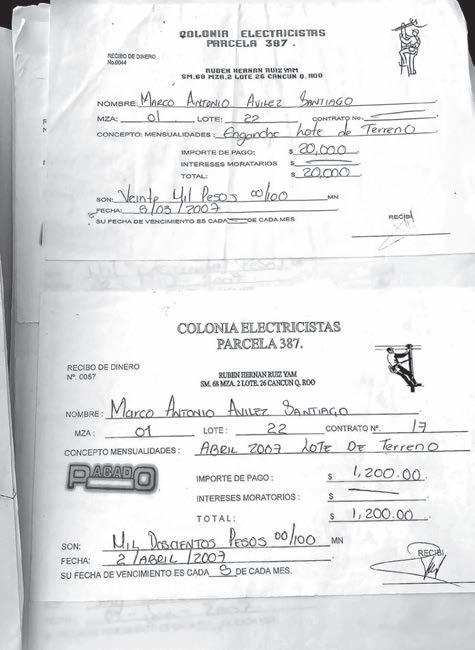 COLONIA ELECTRICISTAS
PARCELA 387.
RECIBO DE DINERO
No.0044
RUBEN HERNAN RUIZ YAM
SM.68 MZA.2 LOTE 26 CANCUN Q. ROO
NOMBRE: MARCO ANTONIO AVILEZ SANTIAGO
MZA: 01 LOTE: 22 CONTRATO No.
CONCEPTO: MENSUALIDADES: Enganche Lote de Terreno
IMPORTE DE PAGO: $ 20,000
INTERESES MORATARIOS $
TOTAL: $ 20,000
SON: Veinte Mil Pesos 00/100 MN
FECHA: 8/03/2007
SU FECHA DE VENCIMIENTO ES CADA DE CADA MES
RECIBI
COLONIA ELECTRICISTAS
PARCELA 387.
RECIBO DE DINERO
Nº. 0057
RUBEN HERNAN RUIZ YAM
SM. 68 MZA. 2 LOTE. 26 CANCUN Q. ROO
NOMBRE: MARCO ANTONIO AVILEZ SANTIAGO
MZA: 01 LOTE: 22 CONTRATO Nº. 17
CONCEPTO MENSUALIDADES: ABRIL 2007 LOTE DE TERRENO
PAGADO
IMPORTE DE PAGO: $ 1,200.00
INTERESES MORATORIOS: $
TOTAL: $ 1,200.00
SON: MIL DOSCIENTOS PESOS 00/100 MN
FECHA: 2/ABRIL/2007
RECIBI
SU FECHA DE VENCIMIENTO ES CADA 8 DE CADA MES.